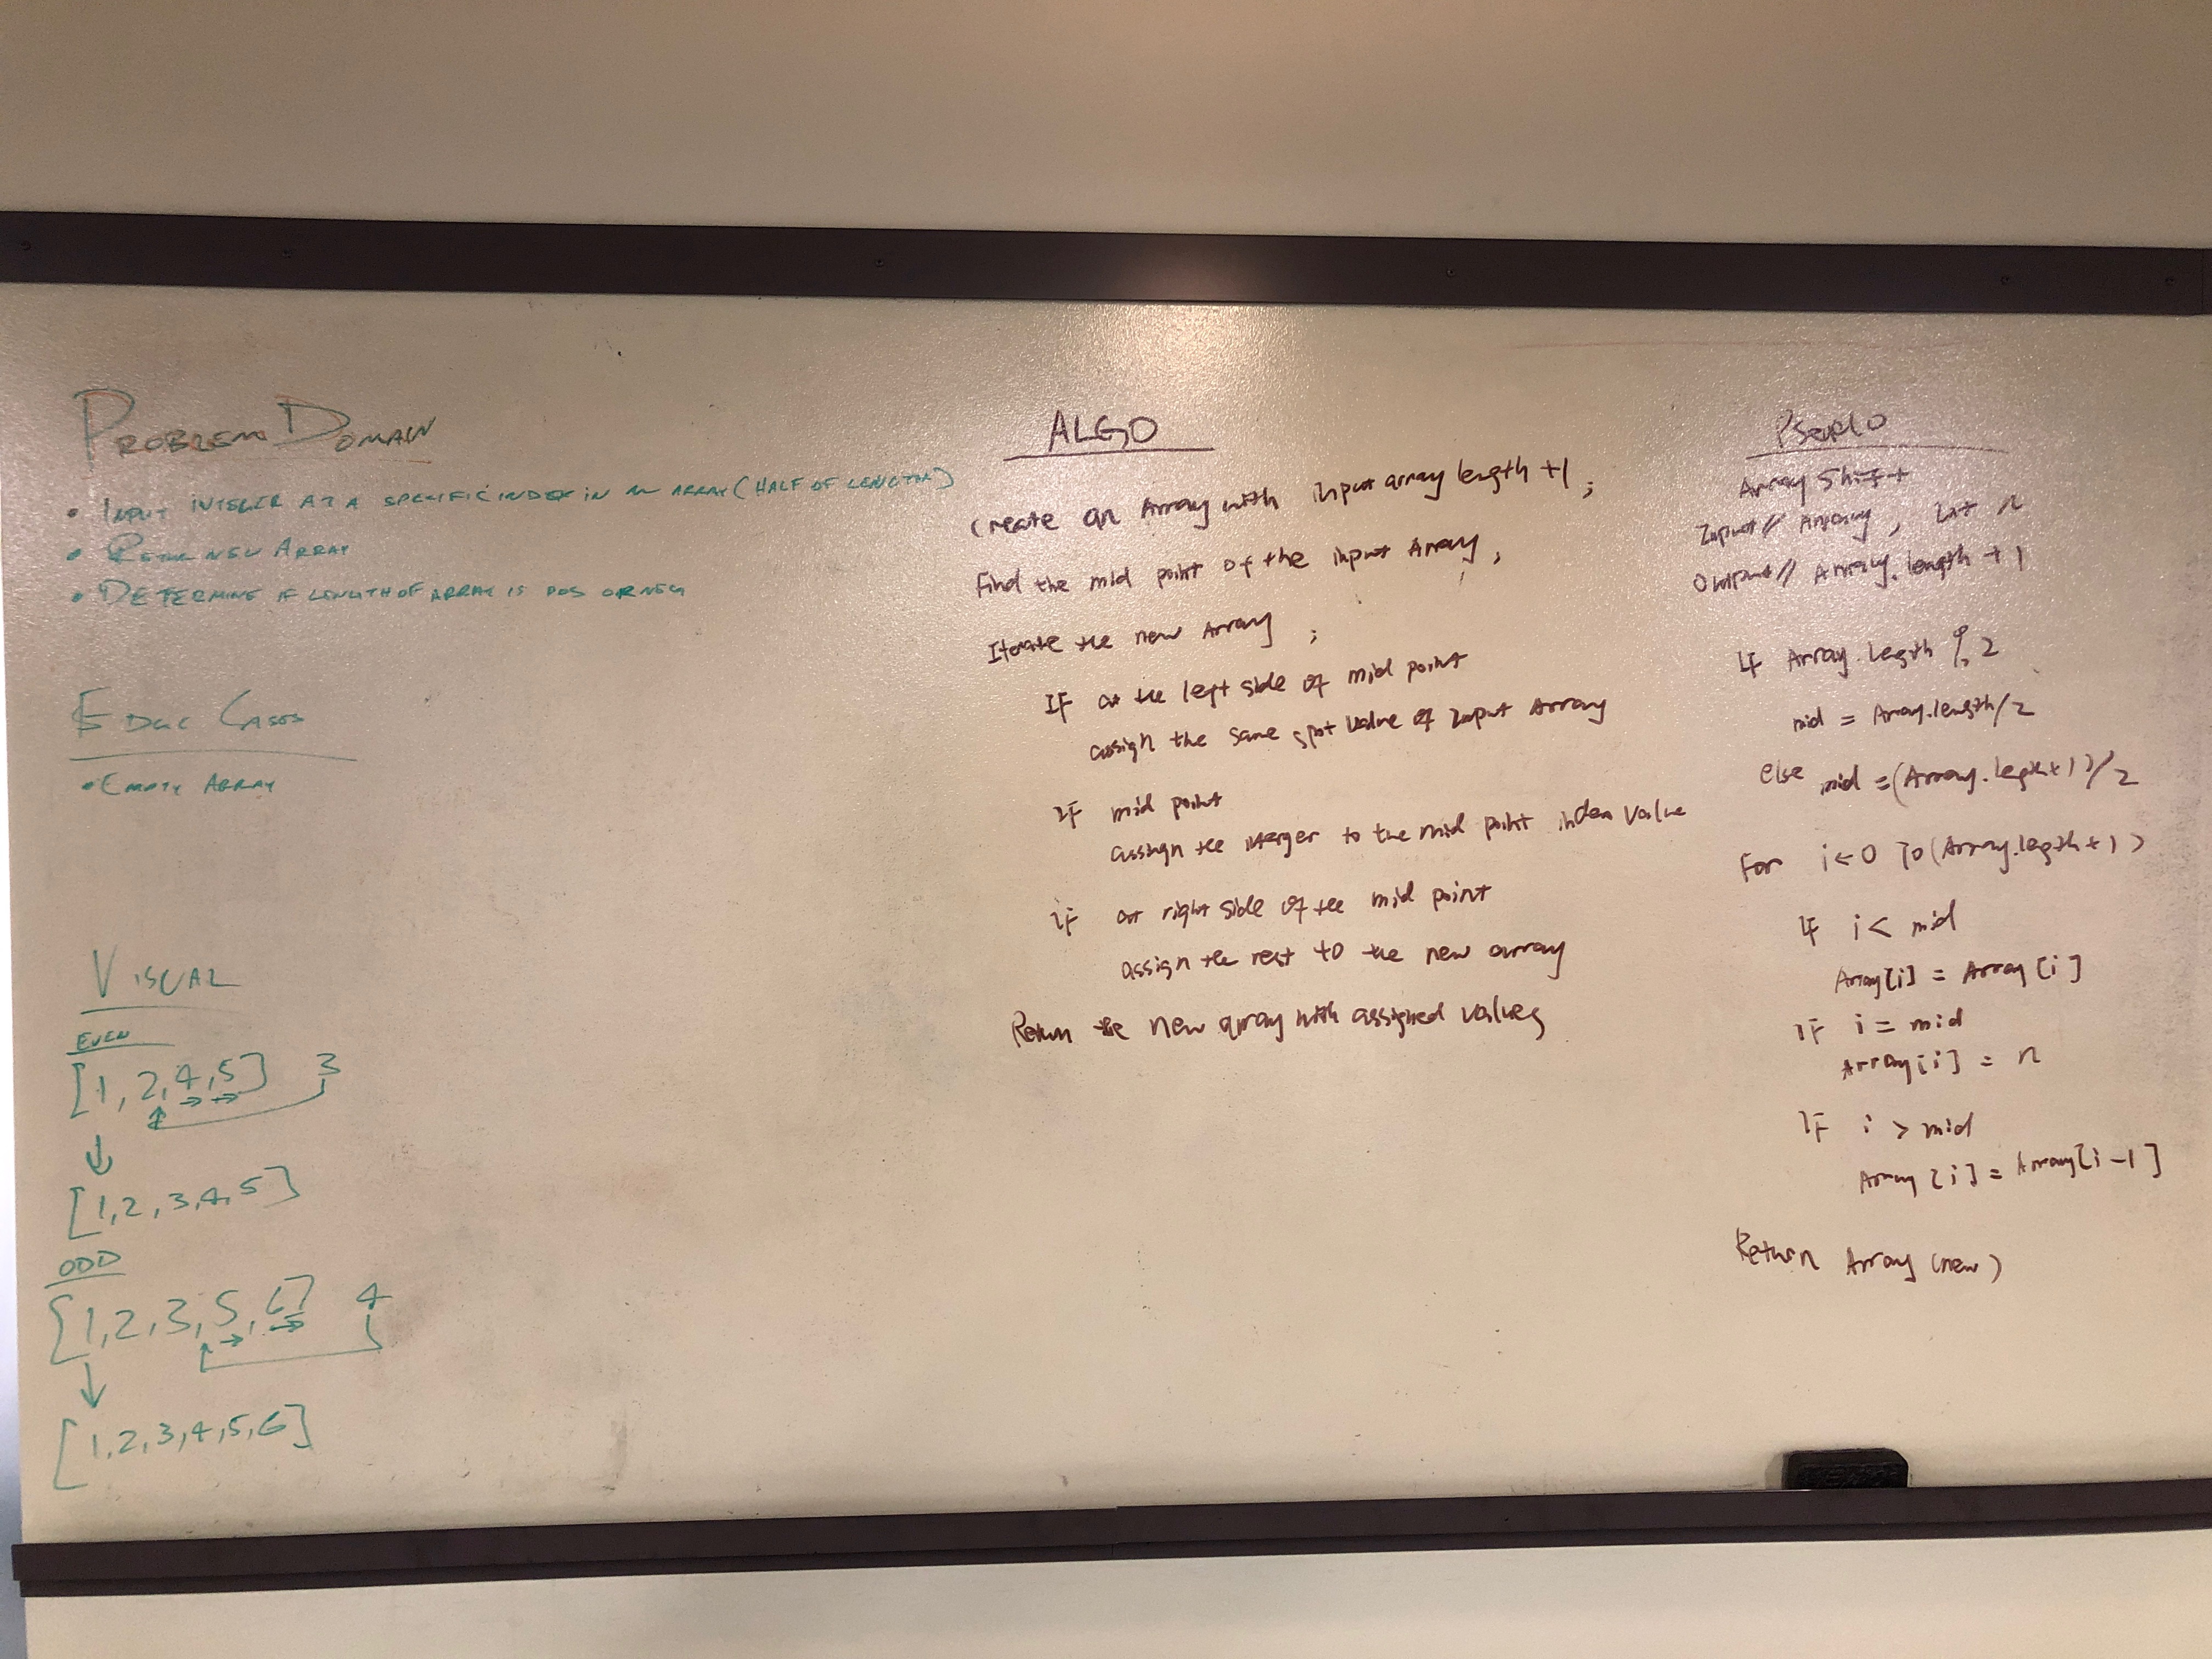 PROBLEM DOMAIN
• INPUT INTEGER AT A SPECIFIC INDEX IN AN ARRAY (HALF OF LENGTH)
• RETURN NEW ARRAY
• DETERMINE IF LENGTH OF ARRAY IS POS OR NEG
EDGE CASES
• EMPTY ARRAY
VISUAL
EVEN
[1, 2, 4, 5] 3
[1, 2, 3, 4, 5]
ODD
[1, 2, 3, 5, 6] 4
[1, 2, 3, 4, 5, 6]
ALGO
Create an Array with input array length +1 ;
Find the mid point of the input Array ;
Iterate the new Array ;
If at the left side of mid point
assign the same spot value of Input Array
If mid point
assign the interger to the mid point index value
if at right side of the mid point
assign the rest to the new array
Return the new array with assigned values
Pseudo
Array Shift
Input // Array , int n
Output // Array.length +1
If Array.length % 2
mid = Array.length/2
else mid = (Array.length+1)/2
For i ← 0 To (Array.length+1)
If i < mid
Array[i] = Array[i]
If i = mid
Array[i] = n
If i > mid
Array[i] = Array[i-1]
Return Array (new)